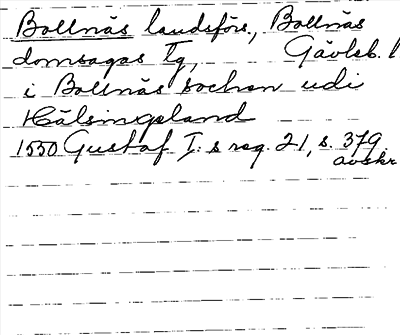 Bollnäs landsförs., Bollnäs
domsagas Tg, Gävleb. l
i Bollnäs sochen udi
Hälsingeland
1550 Gustaf I:s reg. 21, s. 379.
avskr